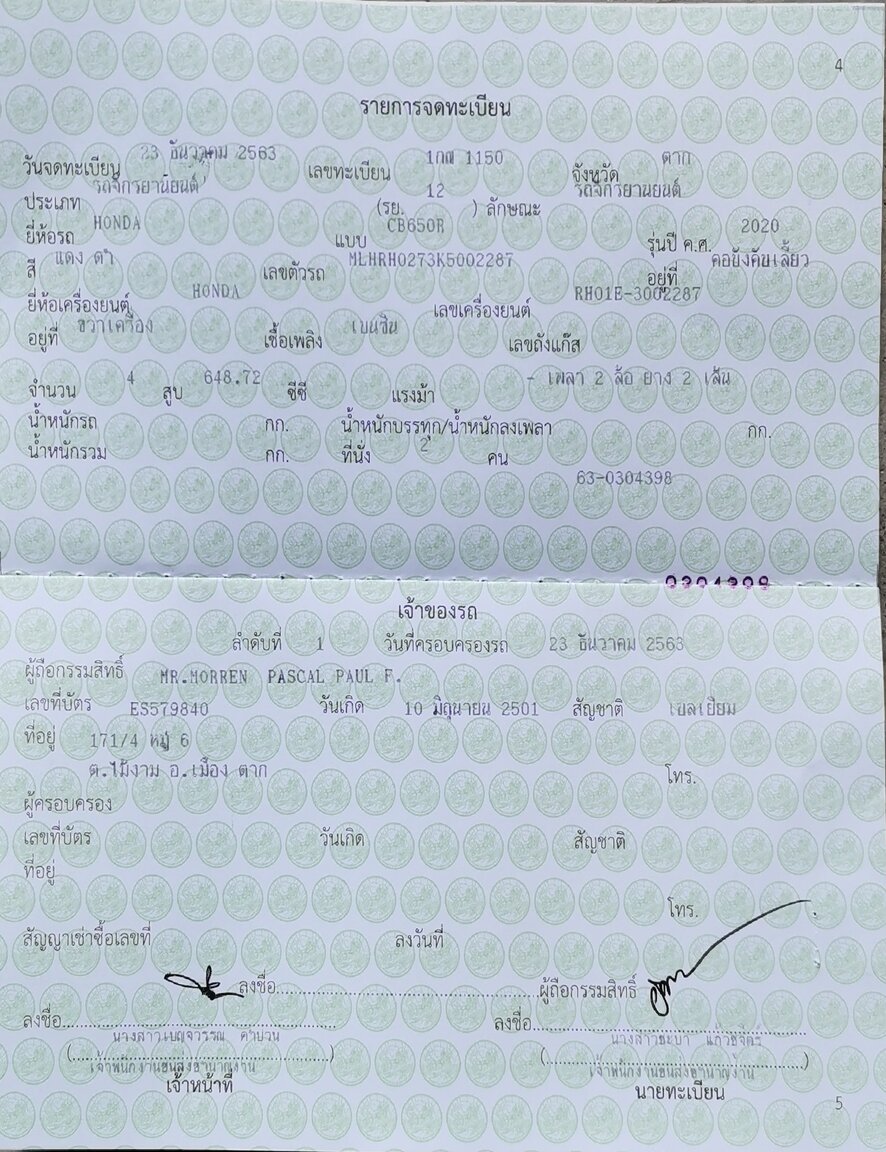 4
รายการจดทะเบียน
วันจดทะเบียน 23 ธันวาคม 2563 เลขทะเบียน 1กณ 1150 จังหวัด ตาก
ประเภท รถจักรยานยนต์ (รย. 12 ) ลักษณะ รถจักรยานยนต์
ยี่ห้อรถ HONDA แบบ CB650R รุ่นปี ค.ศ. 2020
สี แดง ดำ เลขตัวรถ MLHRH0273K5002287 อยู่ที่ คอบังคับเลี้ยว
ยี่ห้อเครื่องยนต์ HONDA เลขเครื่องยนต์ RH01E-3002287
อยู่ที่ ขวาเครื่อง เชื้อเพลิง เบนซิน เลขถังแก๊ส
จำนวน 4 สูบ 648.72 ซีซี แรงม้า - เพลา 2 ล้อ ยาง 2 เส้น
น้ำหนักรถ กก. น้ำหนักบรรทุก/น้ำหนักลงเพลา กก.
น้ำหนักรวม กก. ที่นั่ง 2 คน
63-0304398
0304398
เจ้าของรถ
ลำดับที่ 1 วันที่ครอบครองรถ 23 ธันวาคม 2563
ผู้ถือกรรมสิทธิ์ MR.MORREN PASCAL PAUL F.
เลขที่บัตร ES579840 วันเกิด 10 มิถุนายน 2501 สัญชาติ เบลเยียม
ที่อยู่ 171/4 หมู่ 6
ต.ไม้งาม อ.เมือง ตาก โทร.
ผู้ครอบครอง
เลขที่บัตร วันเกิด สัญชาติ
ที่อยู่
โทร.
สัญญาเช่าซื้อเลขที่ ลงวันที่
ลงชื่อ ผู้ถือกรรมสิทธิ์
ลงชื่อ ลงชื่อ
นางสาวเบญจวรรณ นางสาว
( ) ( )
เจ้าพนักงานขนส่งชำนาญงาน เจ้าพนักงานขนส่งชำนาญงาน
เจ้าหน้าที่ นายทะเบียน
5